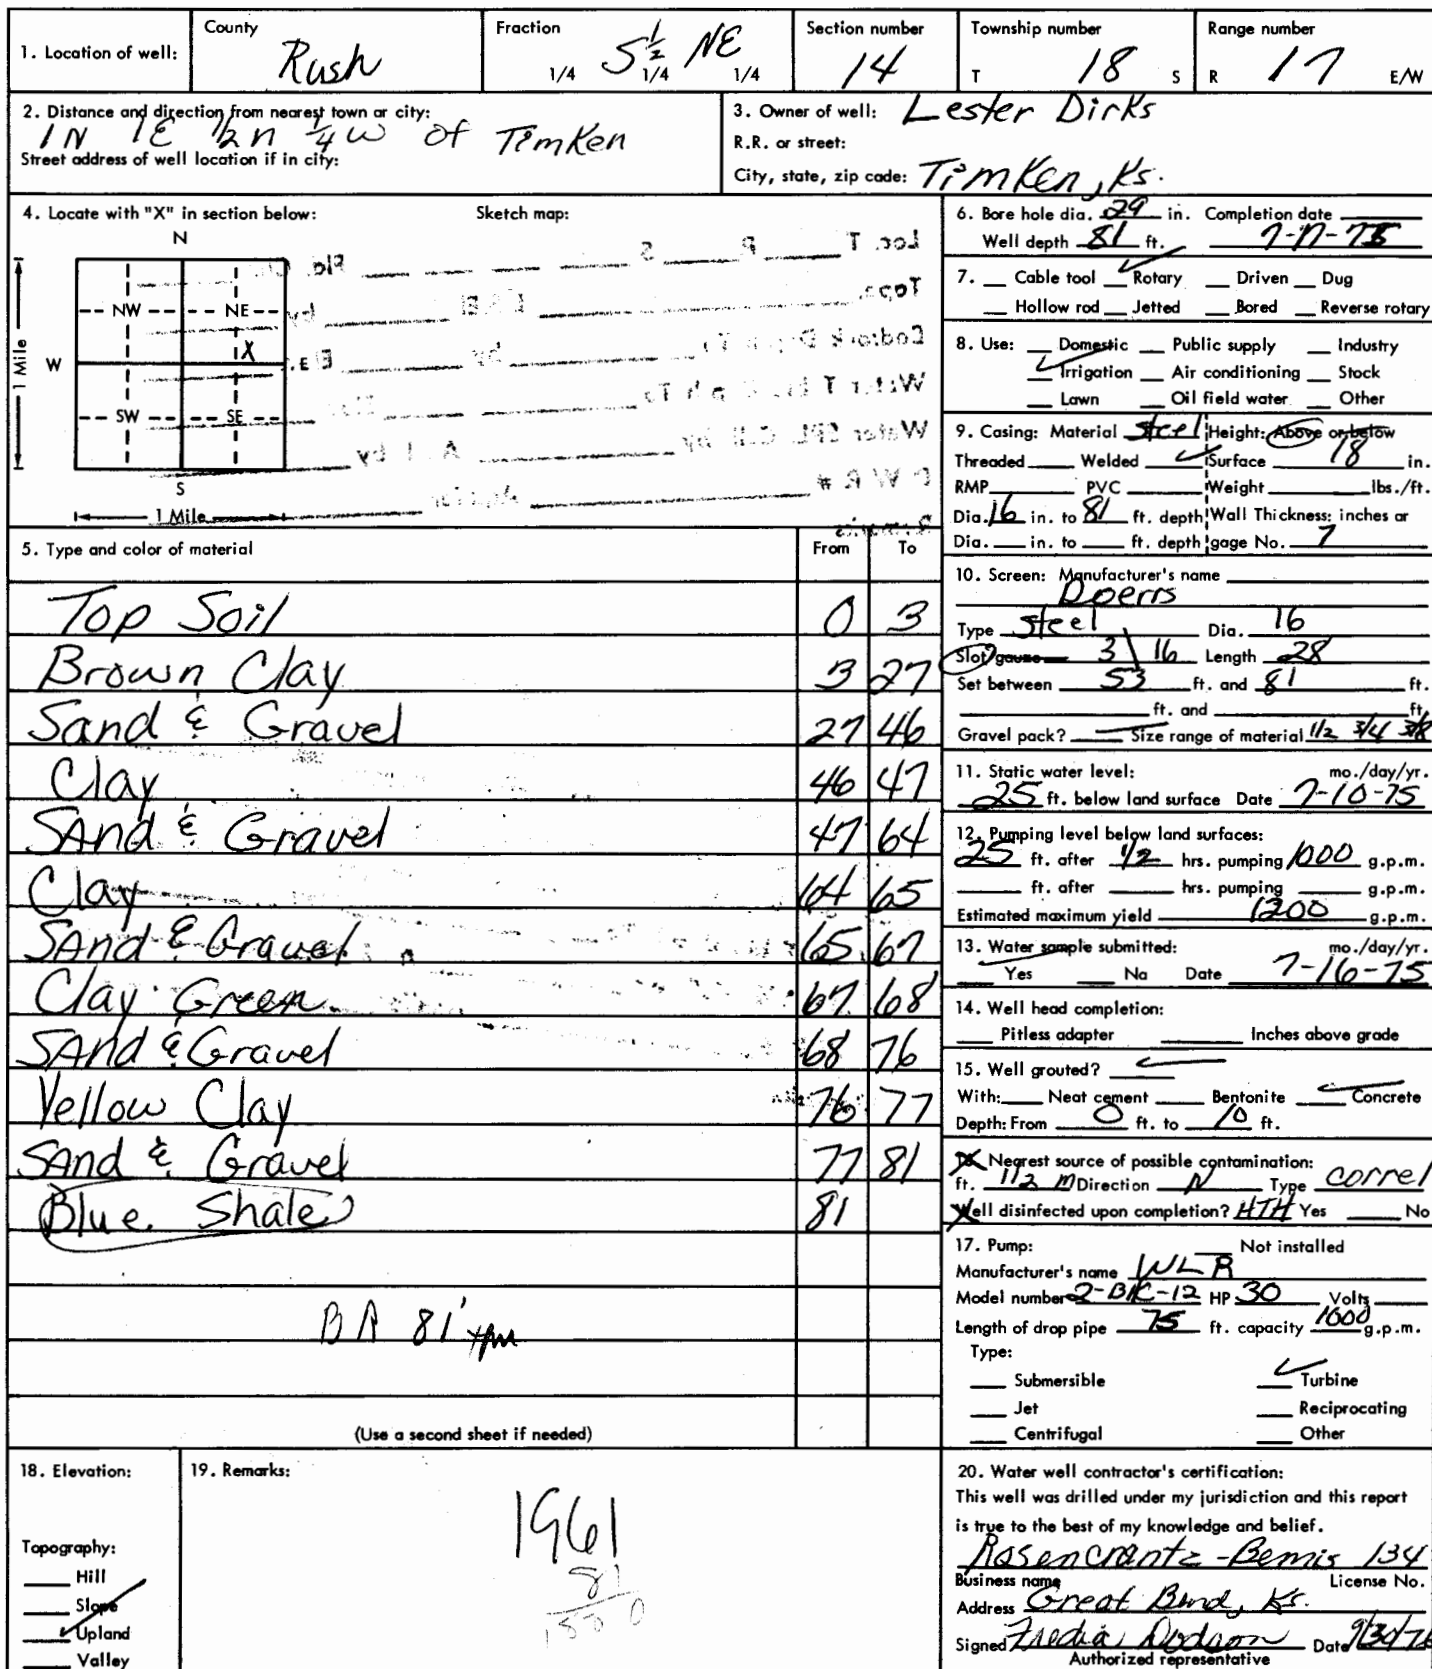 1. Location of well:
County
Rush
Fraction
1/4 S 1/2 1/4 NE 1/4
Section number
14
Township number
T 18 S
Range number
R 17 E/W
2. Distance and direction from nearest town or city:
1N 1E 1/2 n 1/4 w of TimKen
Street address of well location if in city:
3. Owner of well: Lester Dirks
R.R. or street:
City, state, zip code: TimKen, Ks.
4. Locate with "X" in section below:
Sketch map:
N
NW NE
X
W
SW SE
S
1 Mile
1 Mile
5. Type and color of material From To
Top Soil 0 3
Brown Clay 3 27
Sand & Gravel 27 46
Clay 46 47
SAnd & Gravel 47 64
Clay 64 65
SAnd & Gravel 65 67
Clay Green 67 68
SAnd & Gravel 68 76
Yellow Clay 76 77
SAnd & Gravel 77 81
Blue Shale 81
81'
(Use a second sheet if needed)
6. Bore hole dia. 29 in. Completion date
Well depth 81 ft. 7-17-75
7. Cable tool Rotary Driven Dug
Hollow rod Jetted Bored Reverse rotary
8. Use: Domestic Public supply Industry
Irrigation Air conditioning Stock
Lawn Oil field water Other
9. Casing: Material Steel Height: Above or below
Threaded Welded Surface 18 in.
RMP PVC Weight lbs./ft.
Dia. 16 in. to 81 ft. depth Wall Thickness: inches or
Dia. in. to ft. depth gage No. 7
10. Screen: Manufacturer's name
Doerrs
Type Steel Dia. 16
Slot/gauze 3\16 Length 28
Set between 53 ft. and 81 ft.
ft. and ft.
Gravel pack? Size range of material 1/2 3/4 3/8
11. Static water level: mo./day/yr.
25 ft. below land surface Date 7-10-75
12. Pumping level below land surfaces:
25 ft. after 1/2 hrs. pumping 1000 g.p.m.
ft. after hrs. pumping g.p.m.
Estimated maximum yield 1200 g.p.m.
13. Water sample submitted: mo./day/yr.
Yes No Date 7-16-75
14. Well head completion:
Pitless adapter Inches above grade
15. Well grouted?
With: Neat cement Bentonite Concrete
Depth: From 0 ft. to 10 ft.
Nearest source of possible contamination:
ft. 1/2 m Direction N Type correl
Well disinfected upon completion? HTH Yes No
17. Pump: Not installed
Manufacturer's name WLR
Model number HP 30 Volts
Length of drop pipe 75 ft. capacity 1000 g.p.m.
Type:
Submersible Turbine
Jet Reciprocating
Centrifugal Other
18. Elevation:
Topography:
Hill
Slope
Upland
Valley
19. Remarks:
1961
81
1880
20. Water well contractor's certification:
This well was drilled under my jurisdiction and this report
is true to the best of my knowledge and belief.
Rosencrantz-Bemis 134
Business name License No.
Address Great Bend, Ks.
Signed Fredia Dodson Date 9/30/76
Authorized representative